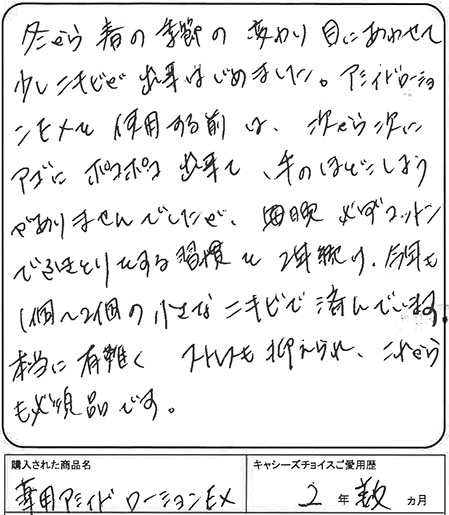 冬から春の季節の変わり目にあわせて
少しニキビが出来はじめました。アシッドローショ
ンEXを使用する前は、次から次に
アゴにポコポコ出来て、手のほどこしよう
がありませんでしたが、毎日晩必ずコットン
でふきとりをする習慣を2年続け、今年も
1個〜2個の小さなニキビで済んでいます。
本当に有難く ストレスも抑えられ、これから
も必須品です。
購入された商品名
キャシーズチョイスご愛用歴
薬用アシッドローションEX
2年 数ヵ月